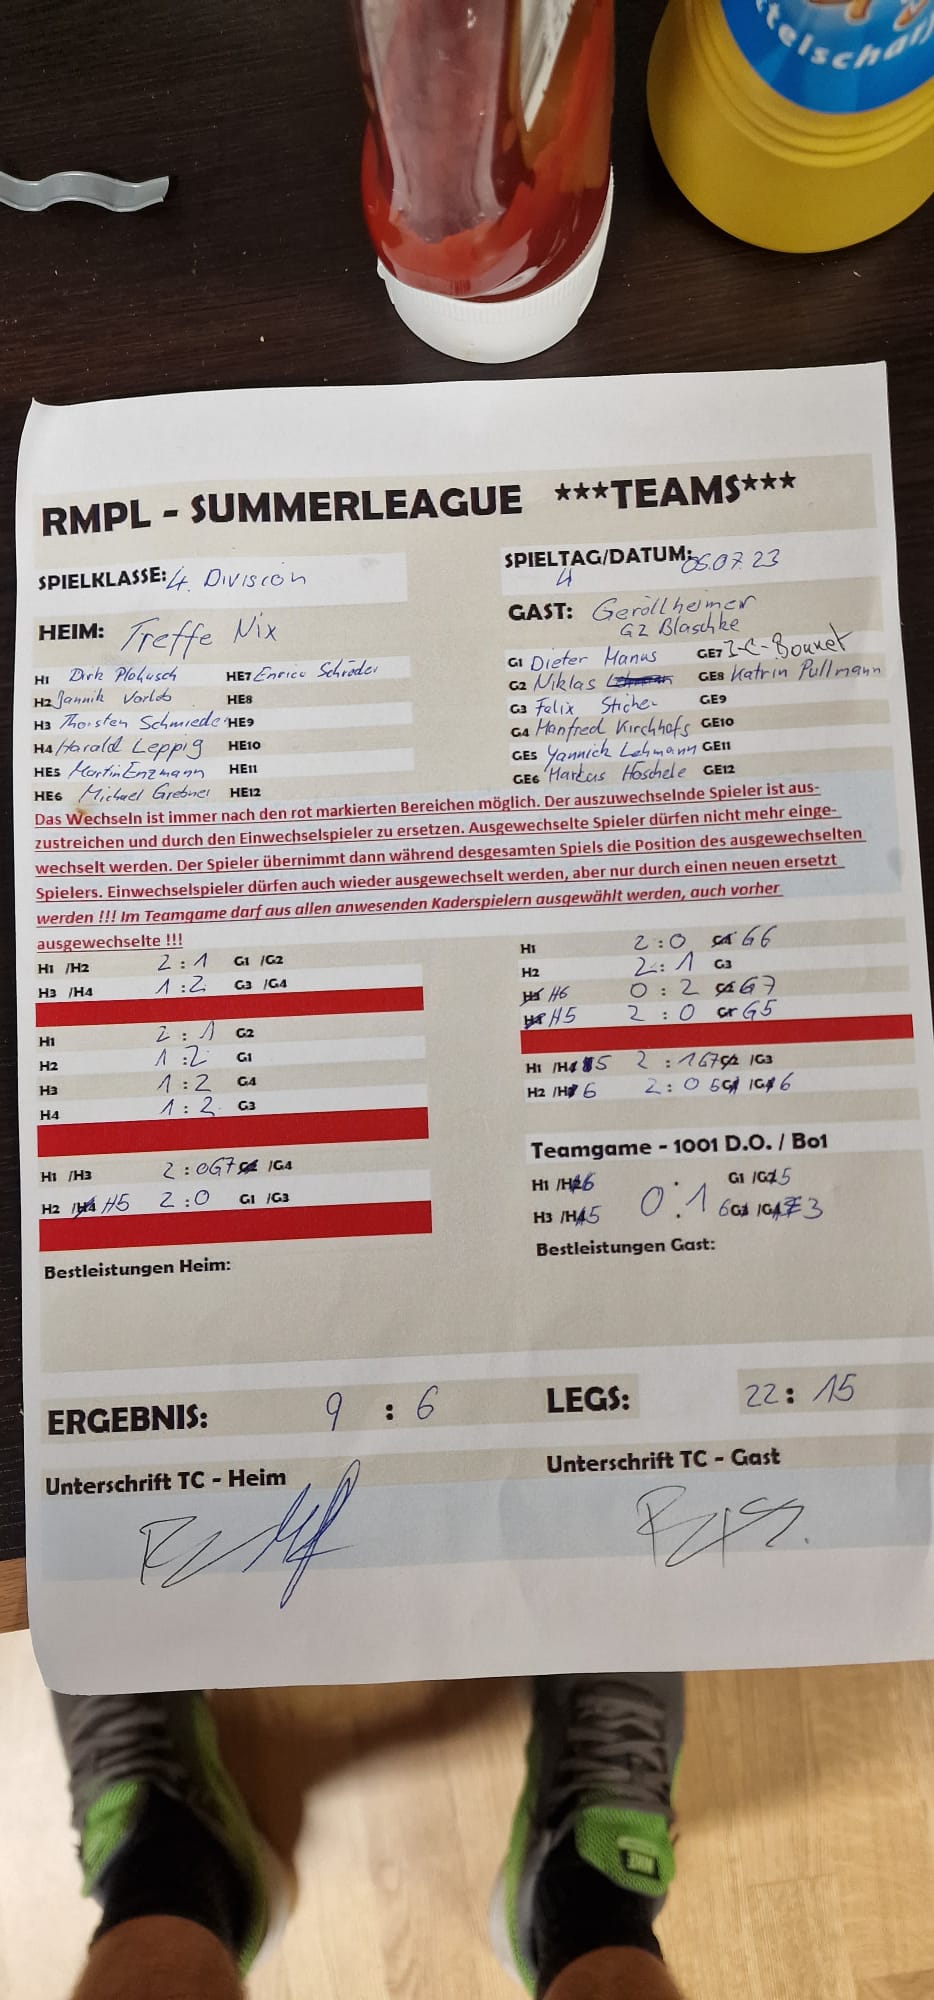 ttelscharf
RMPL - SUMMERLEAGUE ***TEAMS***
SPIELKLASSE: 4. Division
SPIELTAG/DATUM: 06.07.23
4
HEIM: Treffe Nix
GAST: Geröllheimer
G2 Blaschke
H1 Dirk Plohusch HE7 Enrico Schröder
H2 Jannik Vorlob HE8
H3 Thorsten Schmieder HE9
H4 Harald Leppig HE10
HE5 Martin Enzmann HE11
HE6 Michael Grebner HE12
G1 Dieter Manus GE7 J-C-Bonnet
G2 Niklas Lehmann GE8 Katrin Pullmann
G3 Felix Sticher GE9
G4 Manfred Kirchhofs GE10
GE5 Yannick Lehmann GE11
GE6 Markus Höschele GE12
Das Wechseln ist immer nach den rot markierten Bereichen möglich. Der auszuwechselnde Spieler ist aus-
zustreichen und durch den Einwechselspieler zu ersetzen. Ausgewechselte Spieler dürfen nicht mehr einge-
wechselt werden. Der Spieler übernimmt dann während desgesamten Spiels die Position des ausgewechselten
Spielers. Einwechselspieler dürfen auch wieder ausgewechselt werden, aber nur durch einen neuen ersetzt
werden !!! Im Teamgame darf aus allen anwesenden Kaderspielern ausgewählt werden, auch vorher
ausgewechselte !!!
H1 /H2 2 : 1 G1 /G2
H3 /H4 1 : 2 G3 /G4
H1 2 : 1 G2
H2 1 : 2 G1
H3 1 : 2 G4
H4 1 : 2 G3
H1 /H3 2 : 0 G7 /G4
H2 /H4 H5 2 : 0 G1 /G3
Bestleistungen Heim:
H1 2 : 0 G4 G6
H2 2 : 1 G3
H3 H6 0 : 2 G7
H4 H5 2 : 0 G5
H1 /H4 5 2 : 1 G7 G2 /G3
H2 /H 6 2 : 0 5 G1 /G 6
Teamgame - 1001 D.O. / Bo1
H1 /H2 6 G1 /G2 5
H3 /H4 5 0 : 1 6 /G4 3
Bestleistungen Gast:
ERGEBNIS: 9 : 6
LEGS: 22 : 15
Unterschrift TC - Heim
Unterschrift TC - Gast
NIKE